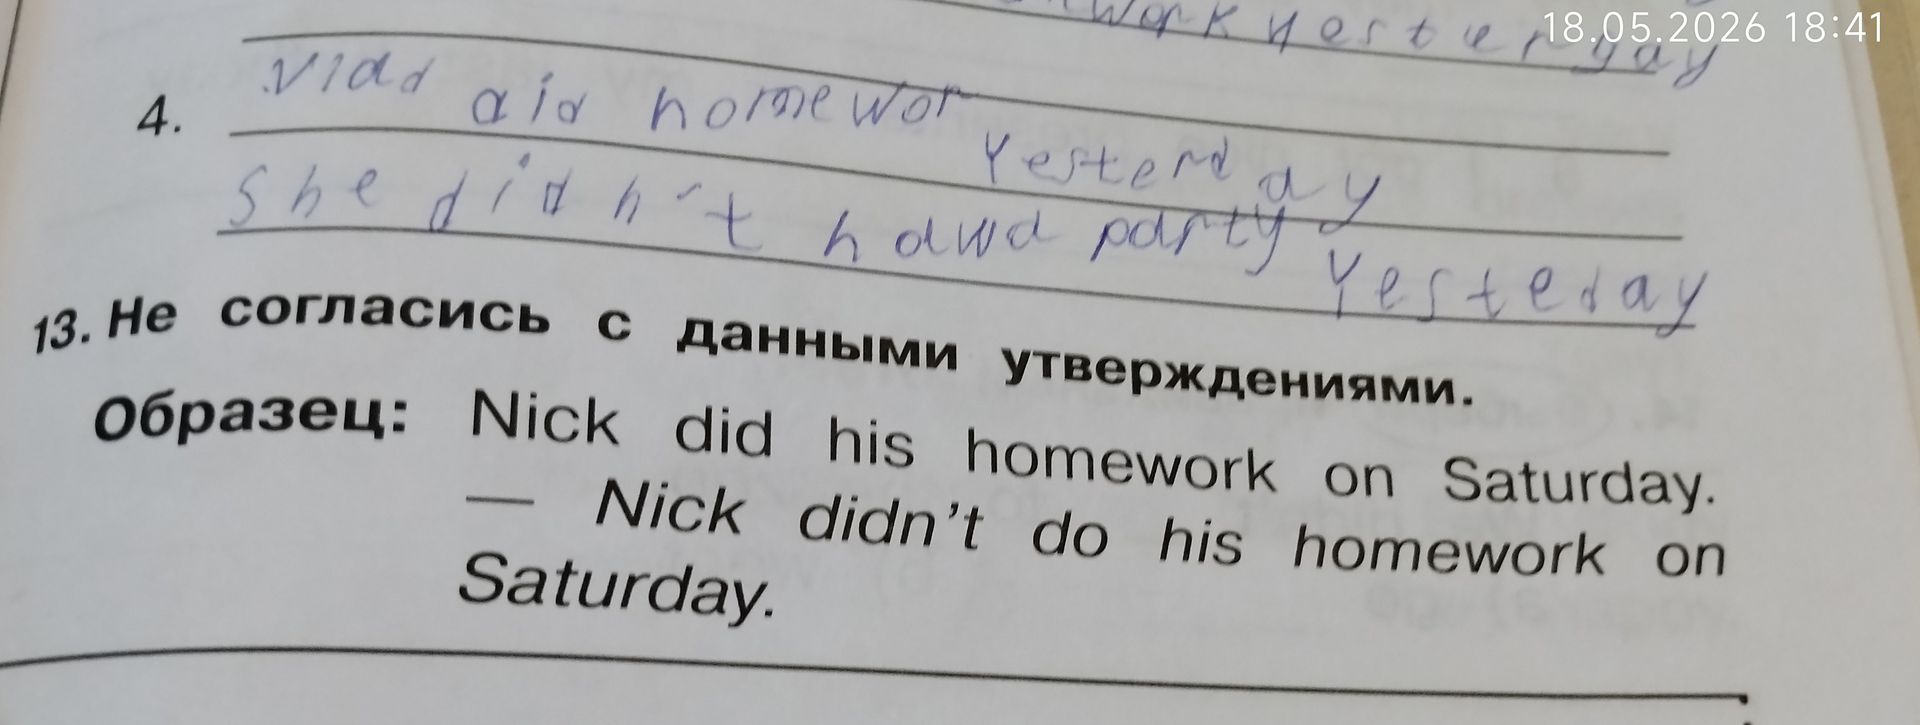 work yesterday
18.05.2026 18:41
Vlad did homewor
4.
Yesterday
She didn't hawd party
Yesterday
13. Не согласись с данными утверждениями.
Образец: Nick did his homework on Saturday.
— Nick didn't do his homework on
Saturday.